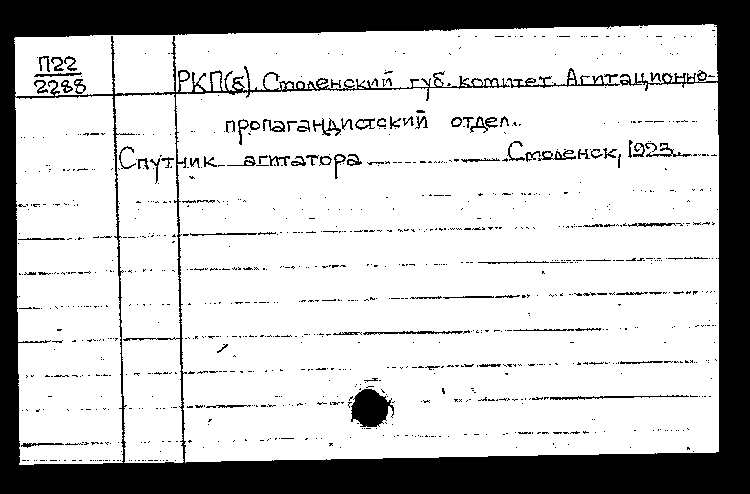 П22
2288
РКП(б). Смоленский губ. комитет. Агитационно-
пропагандистский отдел.
Спутник агитатора Смоленск, 1923.